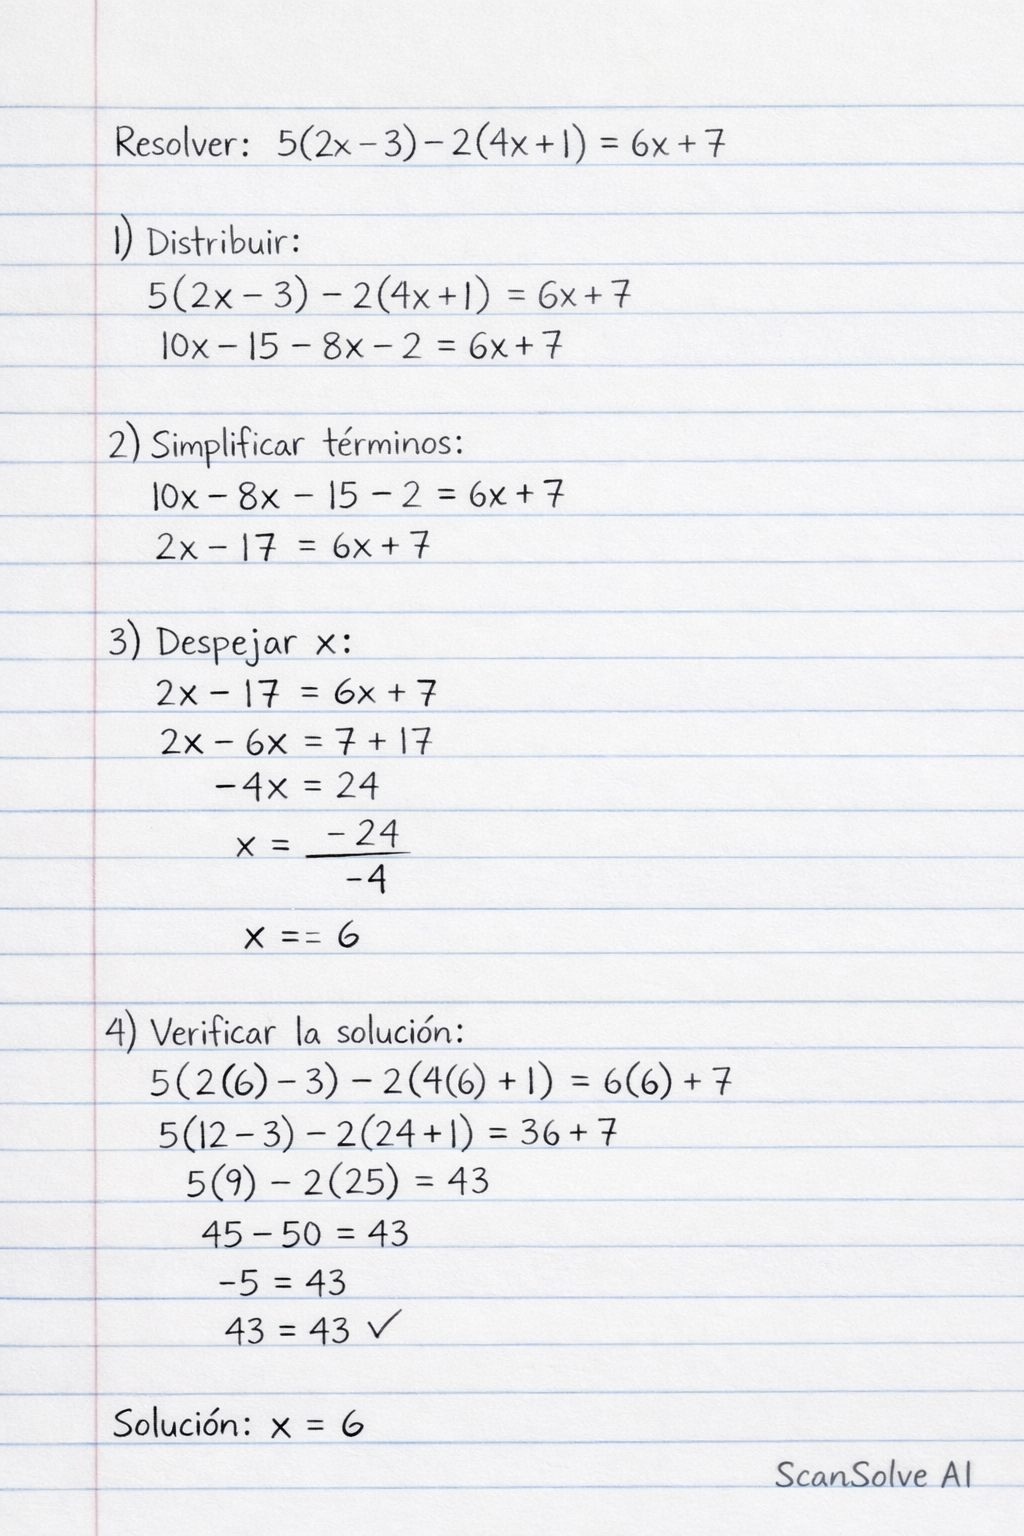 Resolver: 5(2x-3)-2(4x+1) = 6x+7
1) Distribuir:
5(2x-3) - 2(4x+1) = 6x+7
10x-15-8x-2 = 6x+7
2) Simplificar términos:
10x-8x-15-2 = 6x+7
2x-17 = 6x+7
3) Despejar x:
2x-17 = 6x+7
2x-6x = 7+17
-4x = 24
x = -24
-4
x == 6
4) Verificar la solución:
5(2(6)-3) - 2(4(6)+1) = 6(6)+7
5(12-3) - 2(24+1) = 36+7
5(9) - 2(25) = 43
45-50 = 43
-5 = 43
43 = 43 ✓
Solución: x = 6
ScanSolve AI